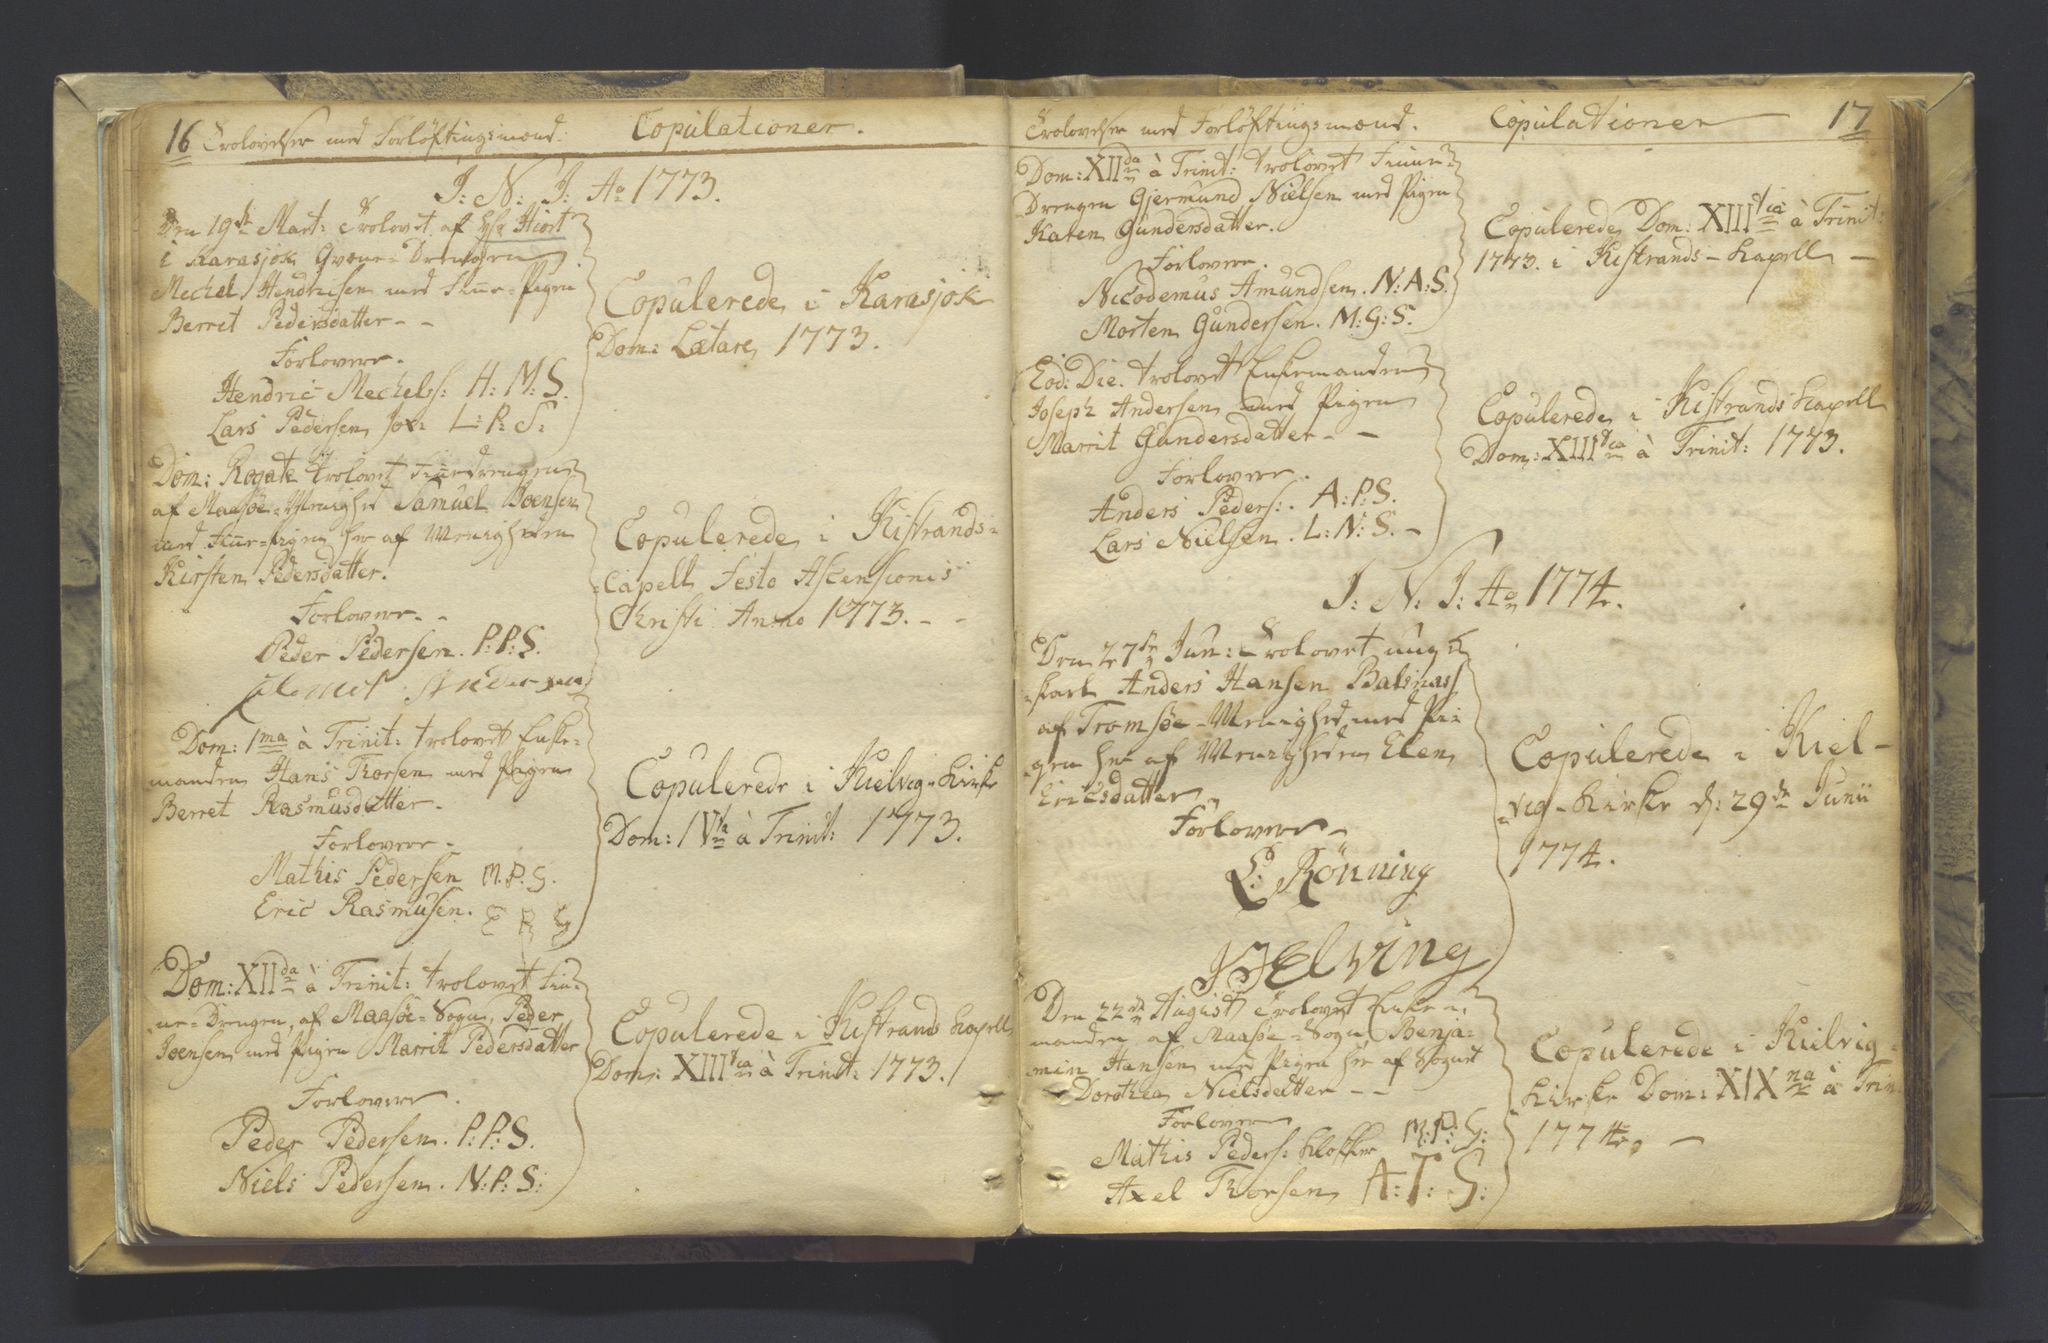 16 Trolovelser med Forløftingsmænd.
Copulationer.
J: N: J: Ao 1773.
Den 19de Mart: Trolovet af Hr Hiort
i Karasjok Qvæne-Drengen
Mechel Hendricsen med Finne-Pigen
Berret Pedersdatter - -
Forlovere.
Hendric Mechels: H: M: S.
Lars Pedersen Jox: L: P: S:
Copulerede i Karasjok
Dom: Lætare 1773.
Dom: Rogate trolovet Finnedrengen
af Maasøe-Menighed Samuel Joensen
med Finne-Pigen her af Menigheden
Kirsten Pedersdatter.
Forlovere - -
Peder Pedersen. P: P: S.
Copulerede i Kistrands-
Capell Festo Ascensionis
Christi Anno 1773. - -
Dom: 1ma à Trinit: trolovet Enke-
manden Hans Thorsen med Pigen
Berret Rasmusdatter.
Forlovere -
Mathis Pedersen M. P. S.
Eric Rasmusen. E R S
Copulerede i Kielvig-Kirke
Dom: IVta à Trinit: 1773.
Dom: XIIda à Trinit: trolovet Fin-
ne-Drengen, af Maasøe-Sogn, Peder
Joensen med Pigen Marrit Pedersdatter
Forlovere.
Peder Pedersen. P: P: S.
Niels Pedersen. N: P: S:
Copulerede i Kistrands Kapell
Dom: XIIItia à Trinit: 1773.
Trolovelser med Forløftingsmænd.
Copulationer
17
Dom: XIIda à Trinit: trolovet Finne-
Drengen Gjermund Nielsen med Pigen
Karen Gundersdatter.
Forlovere.
Nicodemus Amundsen. N: A: S.
Morten Gundersen. M: G: S.
Copulerede Dom: XIIItia à Trinit:
1773. i Kistrands-Kapell -
Eod: Die. trolovet Enkemanden
Joseph Andersen med Pigen
Marrit Gundersdatter - -
Forlovere.
Anders Peders: A: P: S.
Lars Nielsen. L: N: S. -
Copulerede i Kistrands Kapell
Dom: XIIItia à Trinit: 1773.
J: N: J: Ao 1774.
Den 27de Jun: Trolovet ung
karl Anders Hansen Balsnas
af Tromsøe-Menighed, med Pi-
gen her af Menigheden Elen
Ericsdatter
Forlovere -
L: Rönning
JJElving
Copulerede i Kiel-
vig-Kirke d: 29de Junii
1774.
Den 22de August Trolovet Enke-
manden af Maasøe-Sogn Benja-
min Hansen med Pigen her af Sognet
Dorothea Nielsdatter - -
Forlovere
Mathis Peders: Klokker M: P: S:
Axel Thorsen A: T: S:
Copulerede i Kielvig-
Kirke Dom: XIXna à Trin:
1774. -